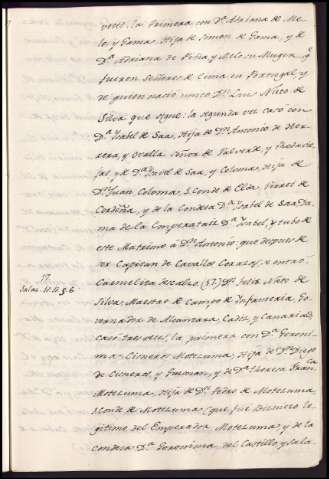 veces, la primera con Dª Mariana de Me-
lo, y Gama, Hija de Simon de Gama, y de
Dª Adriana de Peña y Melo, su Muger, q
fueron Señores de Cima en Portugal, y
de quien nació unico Dn Luis Nuño de
Silva que sigue. la segunda vez casó con
Dª Isabel de Saa, Hija de Dn Antonio de Her-
rera, y Ovalla, Señor de Valverde, y
y de Dª Isabel de Saa, y Coloma, Hija de
Dn Juan Coloma, 1. Conde de Elda, Virrei de
Cerdeña, y de la Condesa Dª Isabel de Saa, Da-
ma de la Emperatriz Dª Isabel, y tubo de
este Matrimo à Dn Antonio, que despues de
ser Capitan de Cavallos Corazas, se entró
Carmelita descalzo (57) Dn Felix Nuño de
57
Salaz. 11. 11. § 6.
Silva, Maestre de Campo de Infanteria, Go-
vernador de Alcantara, Cadiz, y Canarias,
casó tres veces, la primera con Dª Geroni-
ma Cisneros Motezuma, Hija de Dn Diego
de Cisneros, y Guzman, y de Dª Theresa Franca
Motezuma, Hija de Dn Pedro de Motezuma
1. Conde de Motezuma (que fue Bisnieto le-
gitimo del Emperador Motezuma, y de la
Condesa Dª Geronima del Castillo, y Sala